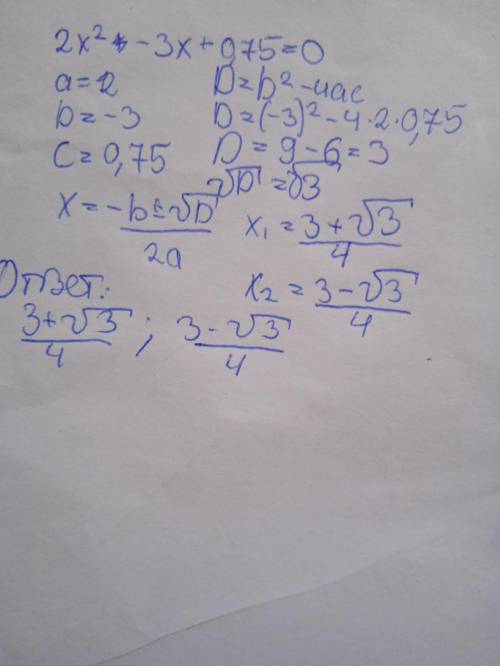 2x² - 3x + 0,75 = 0
a = 2 D = b² - 4ac
b = -3 D = (-3)² - 4·2·0,75
c = 0,75 D = 9 - 6 = 3
√D = √3
x = (-b ± √D)/2a x₁ = (3 + √3)/4
Ответ: x₂ = (3 - √3)/4
(3 + √3)/4 ; (3 - √3)/4